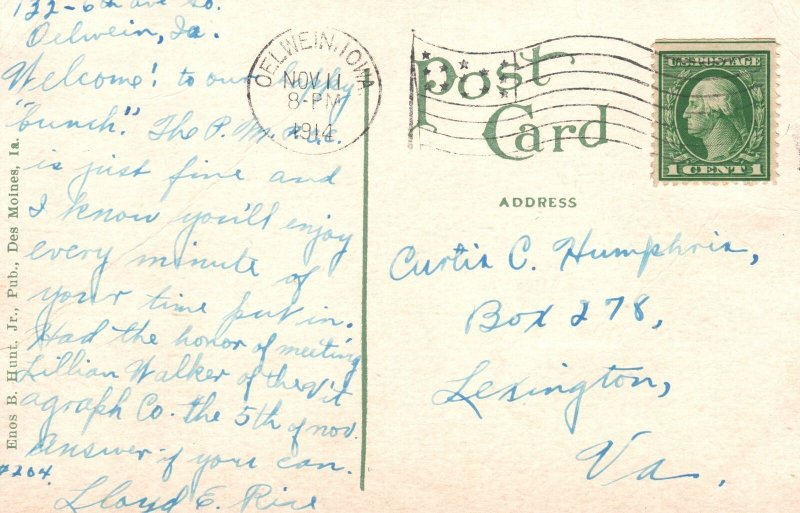 132-6th ave so.
Oelwein, Ia.
Welcome! to our busy
"bunch." The P.M.X.C.
is just fine and
I know you'll enjoy
every minute of
your time put in.
Had the honor of meeting
Lillian Walker of the Vit
agraph Co. the 5th of nov.
answer if you can.
#204 Lloyd E. Rice
Enos B. Hunt, Jr., Pub., Des Moines, Ia.
OELWEIN, IOWA
NOV 11
8-PM
1914
Post
Card
U.S. POSTAGE
1 CENT 1
ADDRESS
Curtis C. Humphris,
Box 278,
Lexington,
Va.